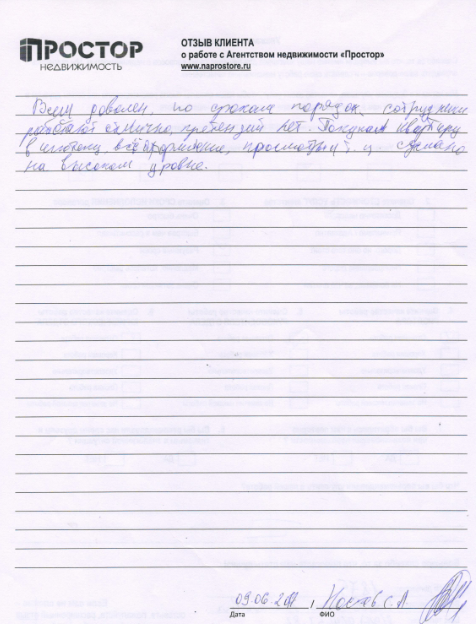 ПРОСТОР
НЕДВИЖИМОСТЬ
ОТЗЫВ КЛИЕНТА
о работе с Агентством недвижимости «Простор»
www.naprostore.ru
Всем доволен, по срокам порядок, сотрудники
работают отлично, претензий нет. Покупал квартиру
в ипотеку, всё оформление, просмотры, и сделано
на высоком уровне.
09.06.201 , Носков С.А.
Дата ФИО